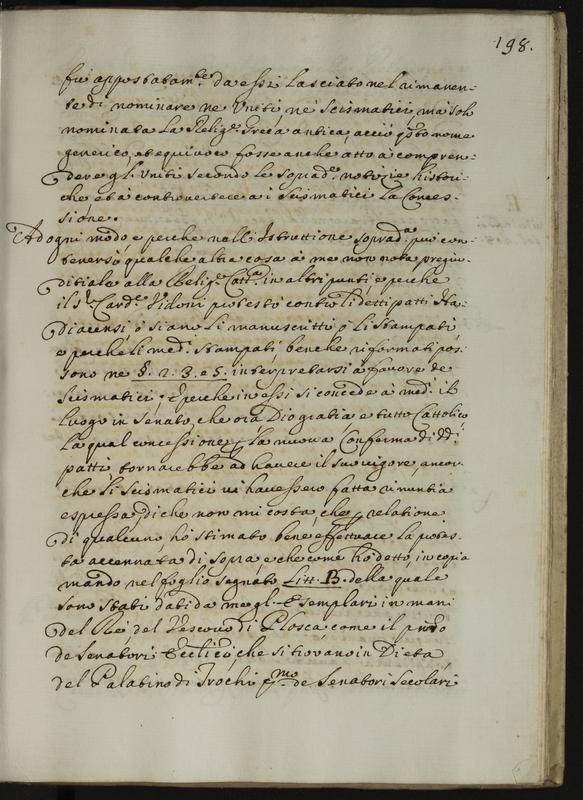 198.
fù appostatam.te da essi lasciato nel rimanen-
te di nominare ne Uniti ne Scismatici, ma solo
nominata la Relig.e Greca antica, acciò q.sto nome
generico, et equivoco fosse anche atto à compren-
dere gl'Uniti secondo le soprad.e notizie histori-
che et à controvertere a i Scismatici la Conces-
sione.
Ad ogni modo e perche nell'Istruttione soprad.a può con-
tenersi qualche altra cosa à me non nota pregiu-
ditiale alla Relig.e Catt.a in altri punti e perche
il S.r Card.e Vidoni protestò contro li detti patti Ha-
diacensi, ò siano li manuscritti, ò li stampati
e perche li med.i stampati, benche riformati pos-
sono ne §. 2. 3. e 5. interpretarsi à favore de
Scismatici, e perche in essi si concede à med.i il
luogo in Senato, che ora Dio gratia e tutto Cattolico
la qual concessione p la nuova Conferma di dd.i
patti, tornarebbe ad havere il suo vigore, ancor
che li Scismatici vi havessero fatta rinuntia
espressa, di che non mi costa, che p relatione
di qualcuno, hò stimato bene effettuare la protes-
ta accennata di sopra, e che come hò detto, in copia
mando nel foglio segnato Litt. B. della quale
sono stati dati da me gl'Esemplari in mani
del Rè, del Vescovo di Plosca come il primo
de Senatori Eccl.ici, che si trovano in Dieta
del Palatino di Trochi p.mo de Senatori Secolari